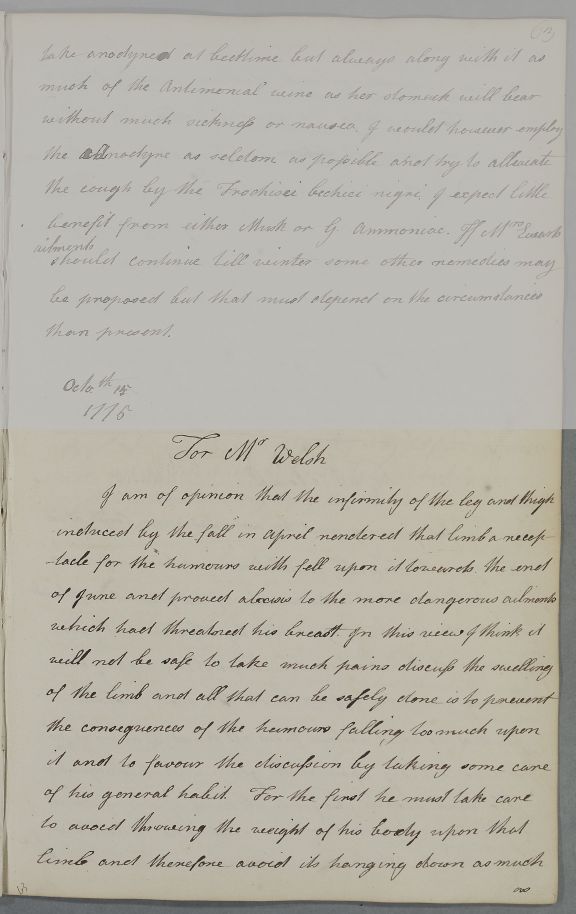 63
take anodyned at bedtime but always along with it as
much of the Antimonial wine as her stomack will bear
without much sickness or nausea. I would however employ
the Anodyne as seldom as possible and try to alleviate
the cough by the Trochisci bechici nigri. I expect little
benefit from either Musk or G. Ammoniac. If Mrs
ailments
should continue till winter some other remedies may
be proposed but that must depend on the circumstances
than present.
Octo. th 15
1776
For Mr Welsh
I am of opinion that the infirmity of the leg and thigh
induced by the fall in April rendered that limb a recep-
-tacle for the humours with fell upon it towards the end
of June and proved a crisis to the more dangerous ailments
which had threatned his breast. In this view I think it
will not be safe to take much pains discuss the swelling
of the limb and all that can be safely done is to prevent
the consequences of the humours falling too much upon
it and to favour the discussion by taking some care
of his general habit. For the first he must take care
to avoid throwing the weight of his body upon that
limb and therefore avoid its hanging down as much
as